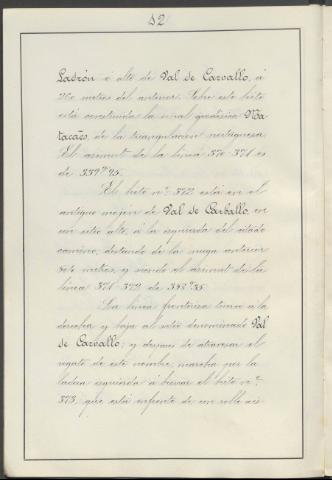 52
Ladrón ó alto de Val de Carvallo, á
260 metros del anterior. Sobre este hito
está construida la señal geodésica Ma-
tacaõs, de la triangulacion portuguesa.
El azimut de la linea 370-371 es
de
El hito nº 372 está en el
antiguo mojon de Val de Carballo, en
un sitio alto, á la izquierda del citado
camino, distando de la muga anterior
metros, y siendo el azimut de la
linea 371-372 de
La linea fronteriza toma a la
derecha y baja al sitio denominado Val
de Carvallo; y despues de atravesar el
regato de este nombre, marcha por la
ladera izquierda á buscar el hito nº
373, que está enfrente de un valle